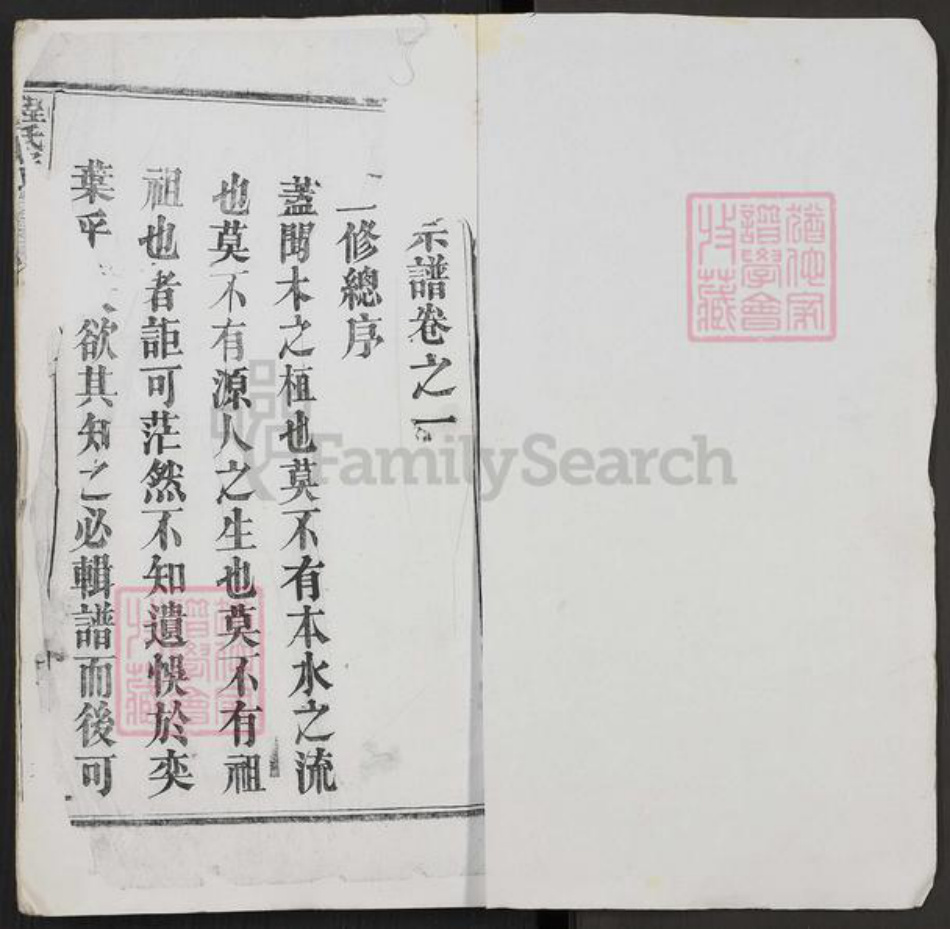 譜卷之一
二修總序
蓋聞木之植也莫不有本水之流
也莫不有源人之生也莫不有祖
祖也者詎可茫然不知遺悞於奕
葉乎 欲其知之必輯譜而後可
猶他家
譜學會
收藏
FamilySearch